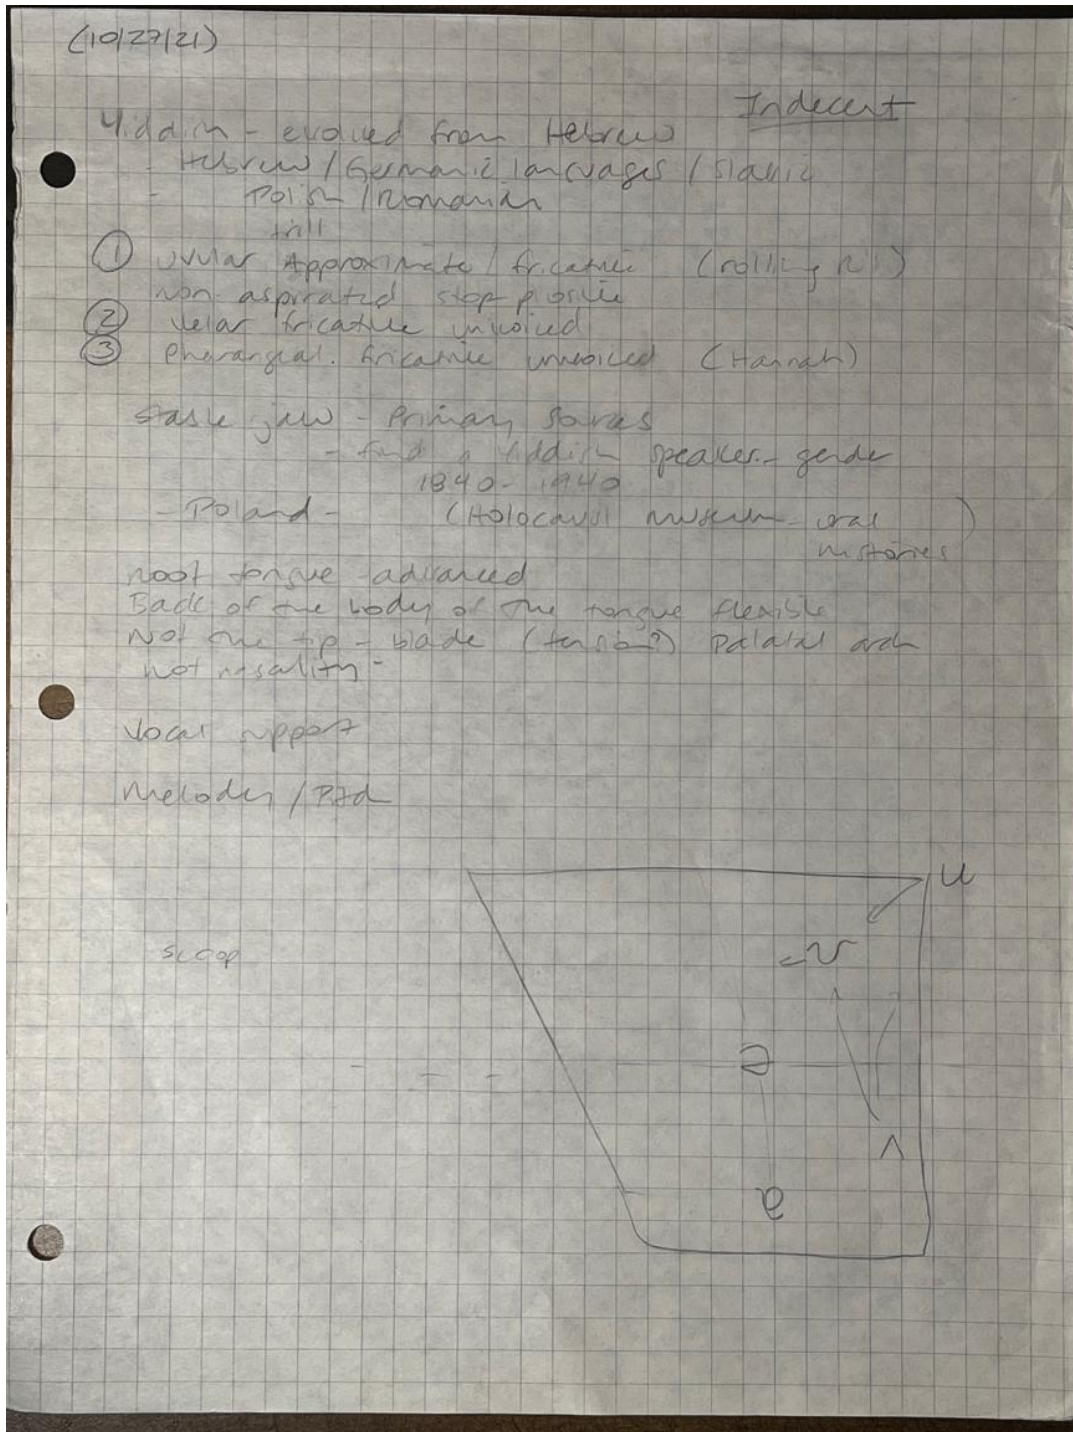 (10/27/21)
Indecent
Yiddish - evolved from Hebrew
- Hebrew / Germanic languages / Slavic
- Polish / Romanian
trill
① uvular Approximate / fricative (rolling R's)
non aspirated stop plosive
② velar fricative unvoiced
③ Pharangial. fricative unvoiced (Hannah)
stable jaw - Primary
- find a Yiddish speaker - gender
1840 - 1940
- Poland - (Holocaust museum - oral
histories)
root tongue - advanced
Back of the body of the tongue flexible
Not the tip - blade (tension?) palatal arch
not nasality -
Vocal support
Melody /
u
scoop
ʊ
ə
ʌ
ɐ